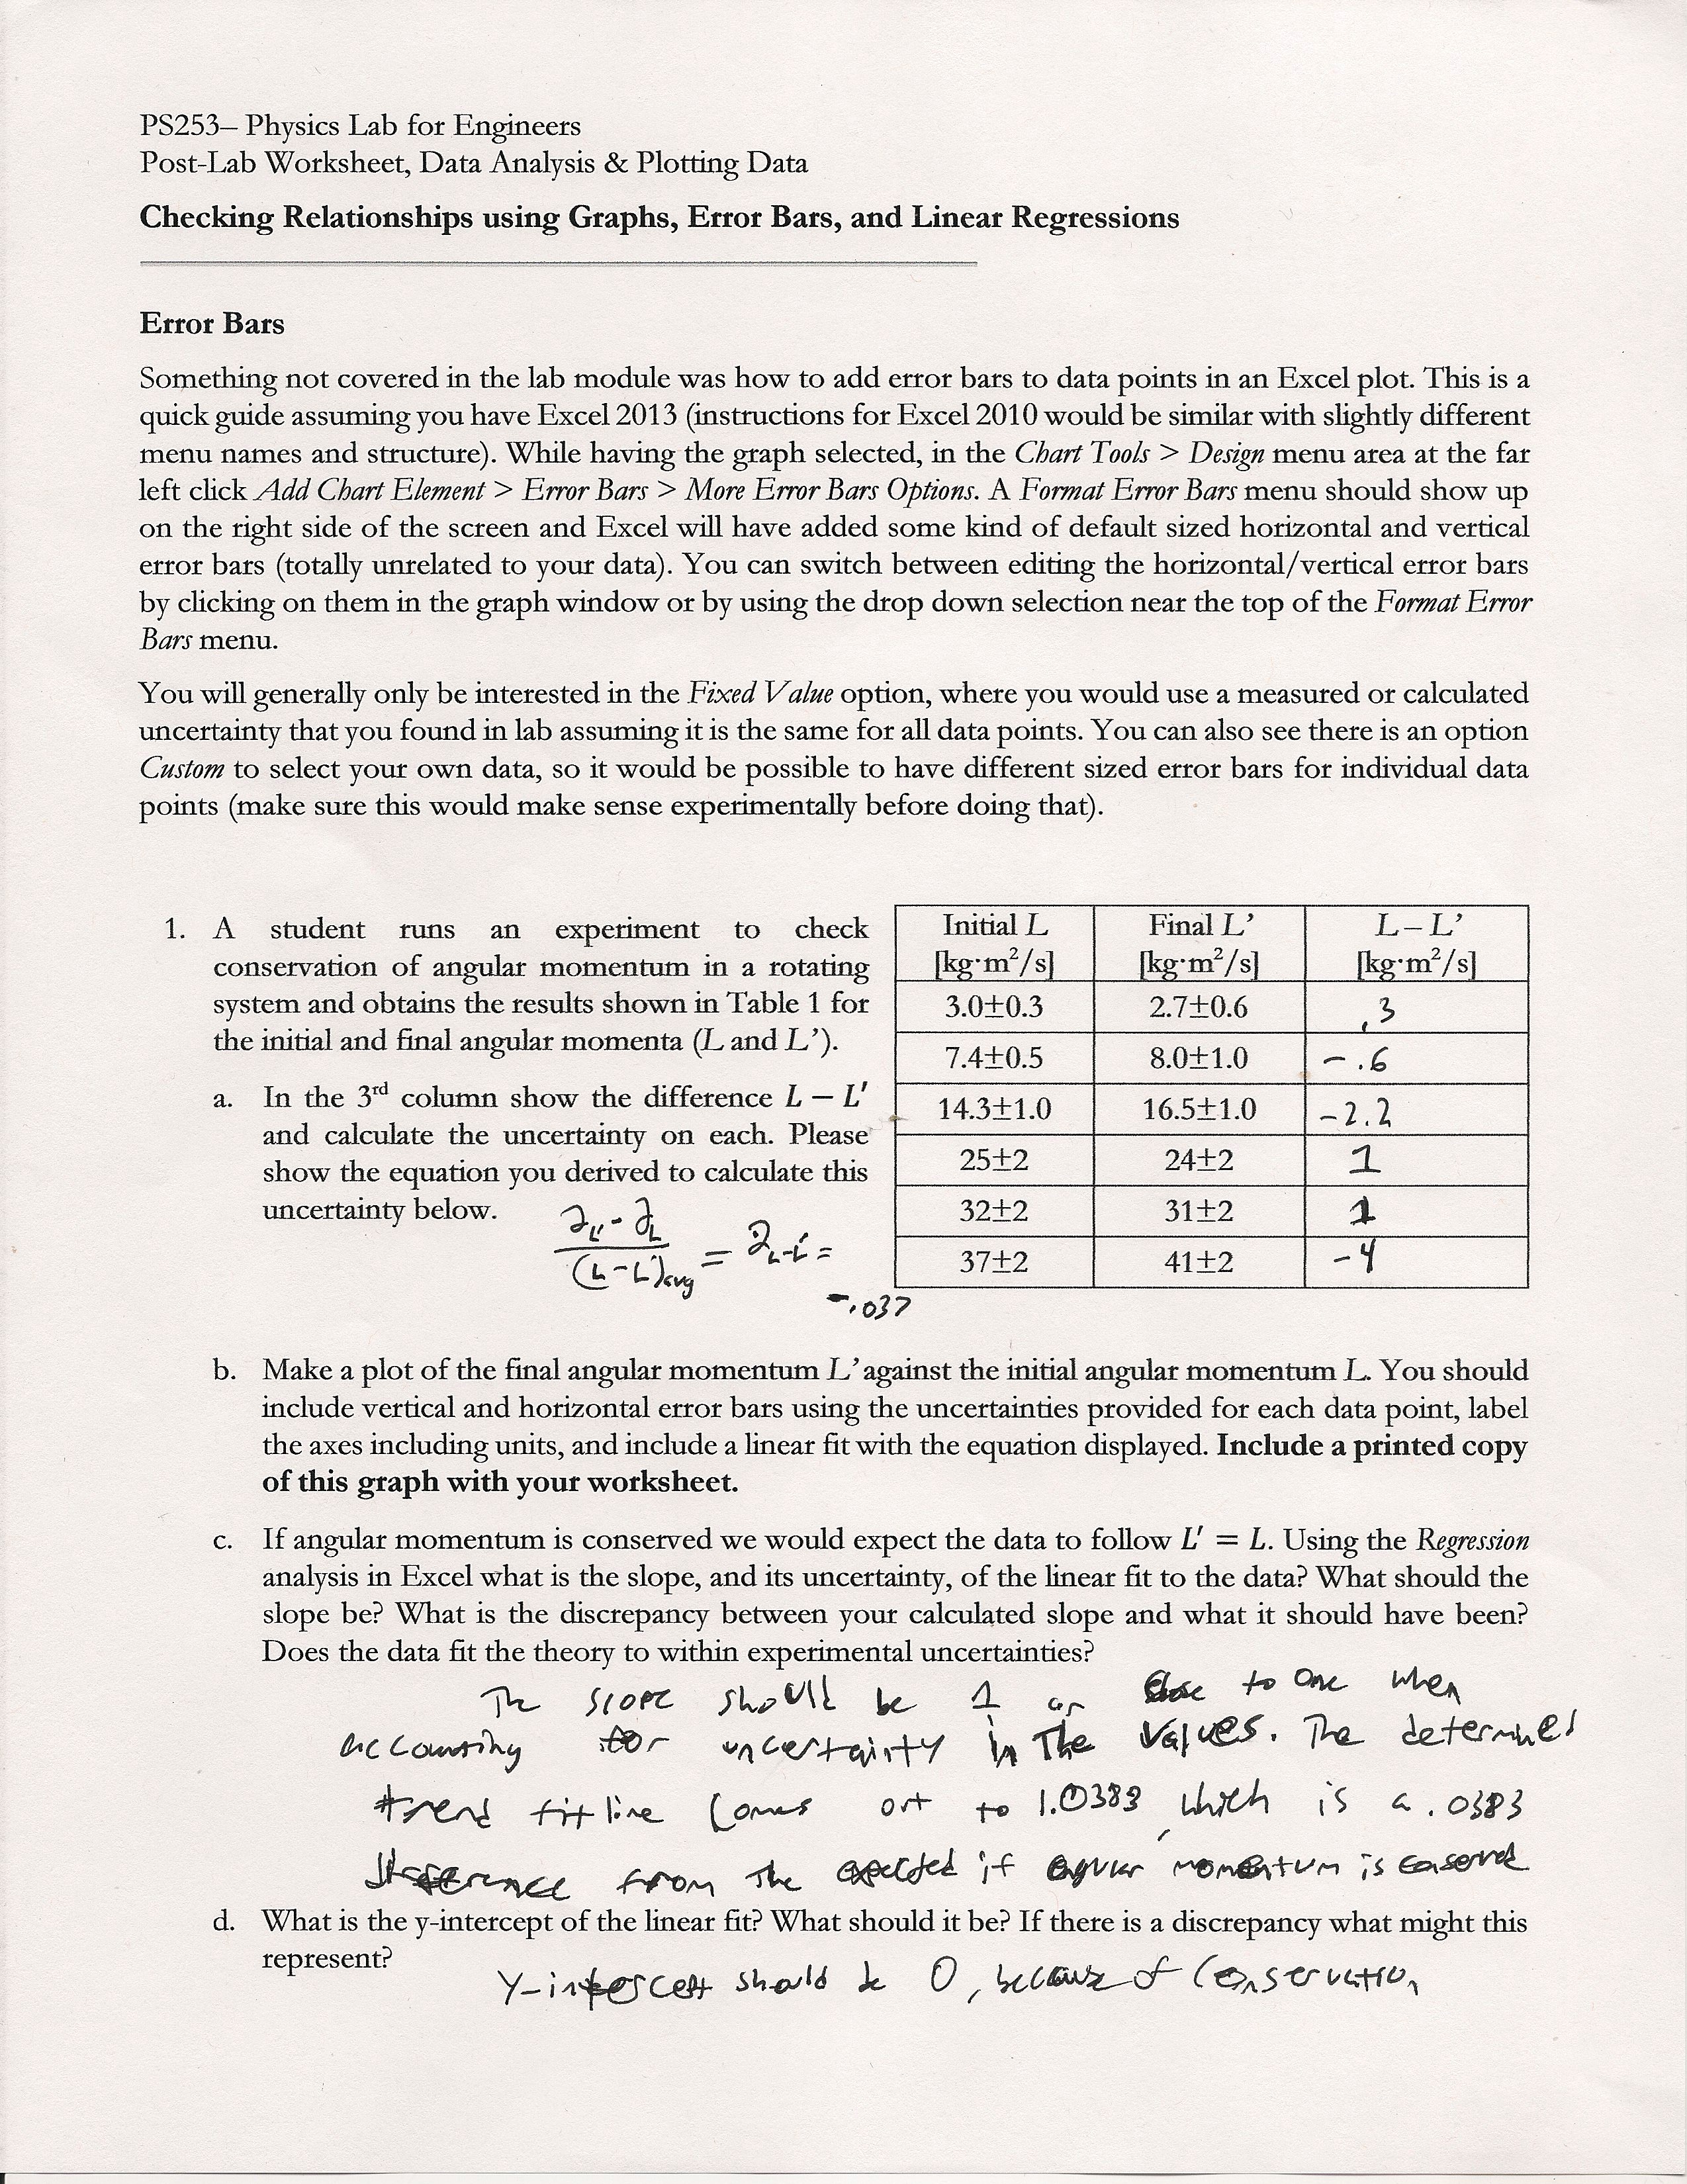 PS253– Physics Lab for Engineers
Post-Lab Worksheet, Data Analysis & Plotting Data
Checking Relationships using Graphs, Error Bars, and Linear Regressions
Error Bars
Something not covered in the lab module was how to add error bars to data points in an Excel plot. This is a
quick guide assuming you have Excel 2013 (instructions for Excel 2010 would be similar with slightly different
menu names and structure). While having the graph selected, in the Chart Tools > Design menu area at the far
left click Add Chart Element > Error Bars > More Error Bars Options. A Format Error Bars menu should show up
on the right side of the screen and Excel will have added some kind of default sized horizontal and vertical
error bars (totally unrelated to your data). You can switch between editing the horizontal/vertical error bars
by clicking on them in the graph window or by using the drop down selection near the top of the Format Error
Bars menu.
You will generally only be interested in the Fixed Value option, where you would use a measured or calculated
uncertainty that you found in lab assuming it is the same for all data points. You can also see there is an option
Custom to select your own data, so it would be possible to have different sized error bars for individual data
points (make sure this would make sense experimentally before doing that).
1. A student runs an experiment to check
conservation of angular momentum in a rotating
system and obtains the results shown in Table 1 for
the initial and final angular momenta (L and L').
a. In the 3rd column show the difference L − L'
and calculate the uncertainty on each. Please
show the equation you derived to calculate this
uncertainty below.
∂L' - ∂L
(L-L')avg = ∂L-L' =
-.037
Initial L Final L' L – L'
[kg·m²/s] [kg·m²/s] [kg·m²/s]
3.0±0.3 2.7±0.6 .3
7.4±0.5 8.0±1.0 -.6
14.3±1.0 16.5±1.0 -2.2
25±2 24±2 1
32±2 31±2 1
37±2 41±2 -4
b. Make a plot of the final angular momentum L' against the initial angular momentum L. You should
include vertical and horizontal error bars using the uncertainties provided for each data point, label
the axes including units, and include a linear fit with the equation displayed. Include a printed copy
of this graph with your worksheet.
c. If angular momentum is conserved we would expect the data to follow L' = L. Using the Regression
analysis in Excel what is the slope, and its uncertainty, of the linear fit to the data? What should the
slope be? What is the discrepancy between your calculated slope and what it should have been?
Does the data fit the theory to within experimental uncertainties?
The slope should be 1 or close to one when
accounting for uncertainty in the values. The determined
trend fit line comes out to 1.0383, which is a .0383
difference from the expected if angular momentum is conserved
d. What is the y-intercept of the linear fit? What should it be? If there is a discrepancy what might this
represent?
Y-intercept should be 0, because of conservation